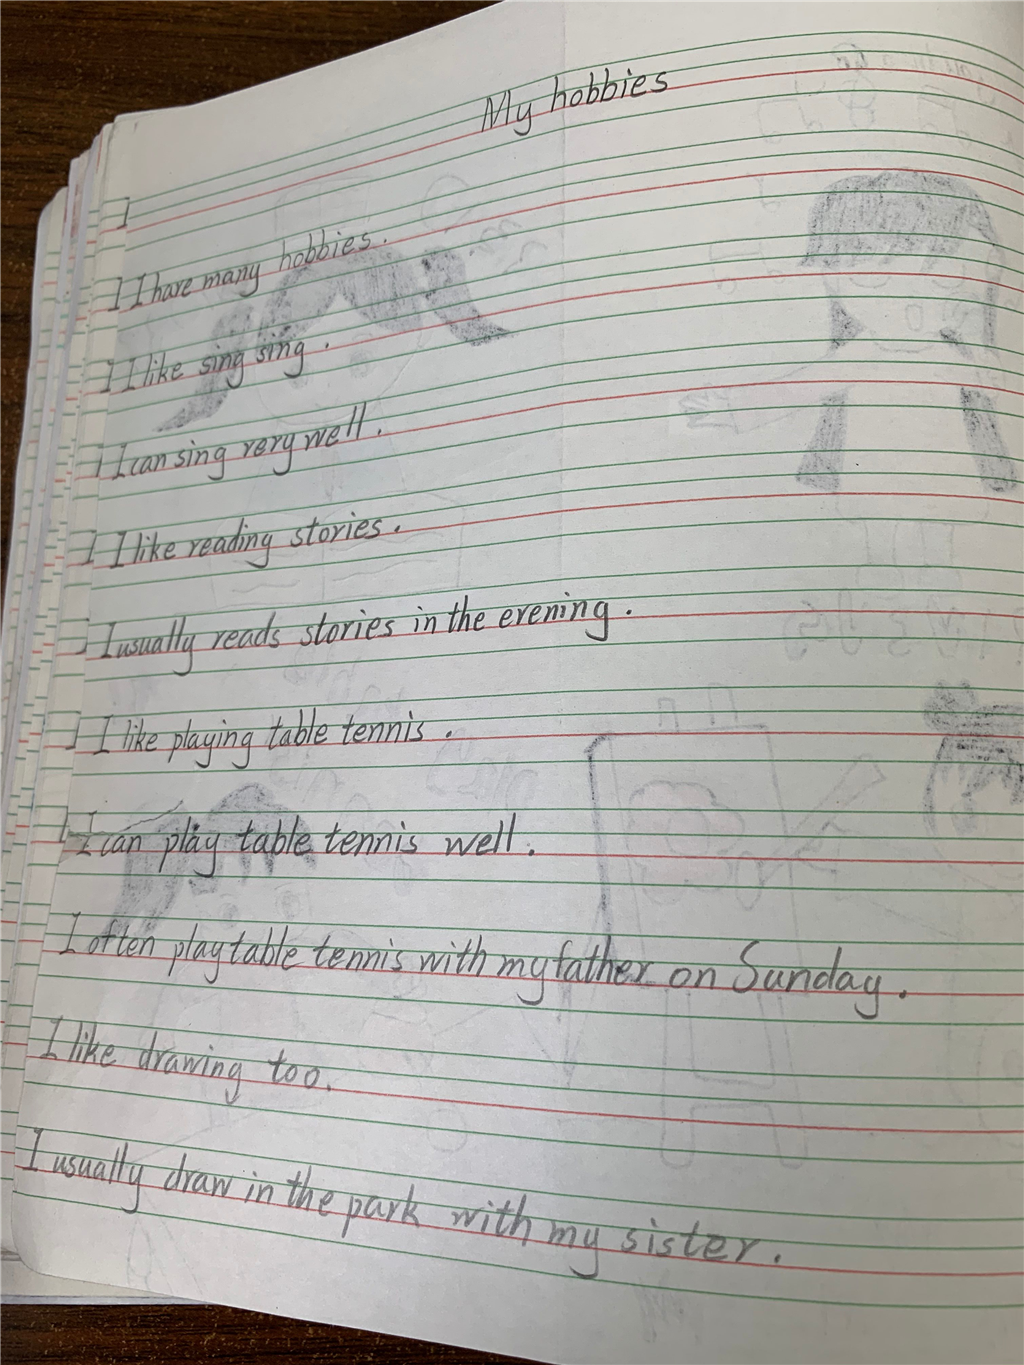 My hobbies
I have many hobbies.
I like sing sing.
I can sing very well.
I like reading stories.
I usually reads stories in the evening.
I like playing table tennis.
I can play table tennis well.
I often play table tennis with my father on Sunday.
I like drawing too.
I usually draw in the park with my sister.